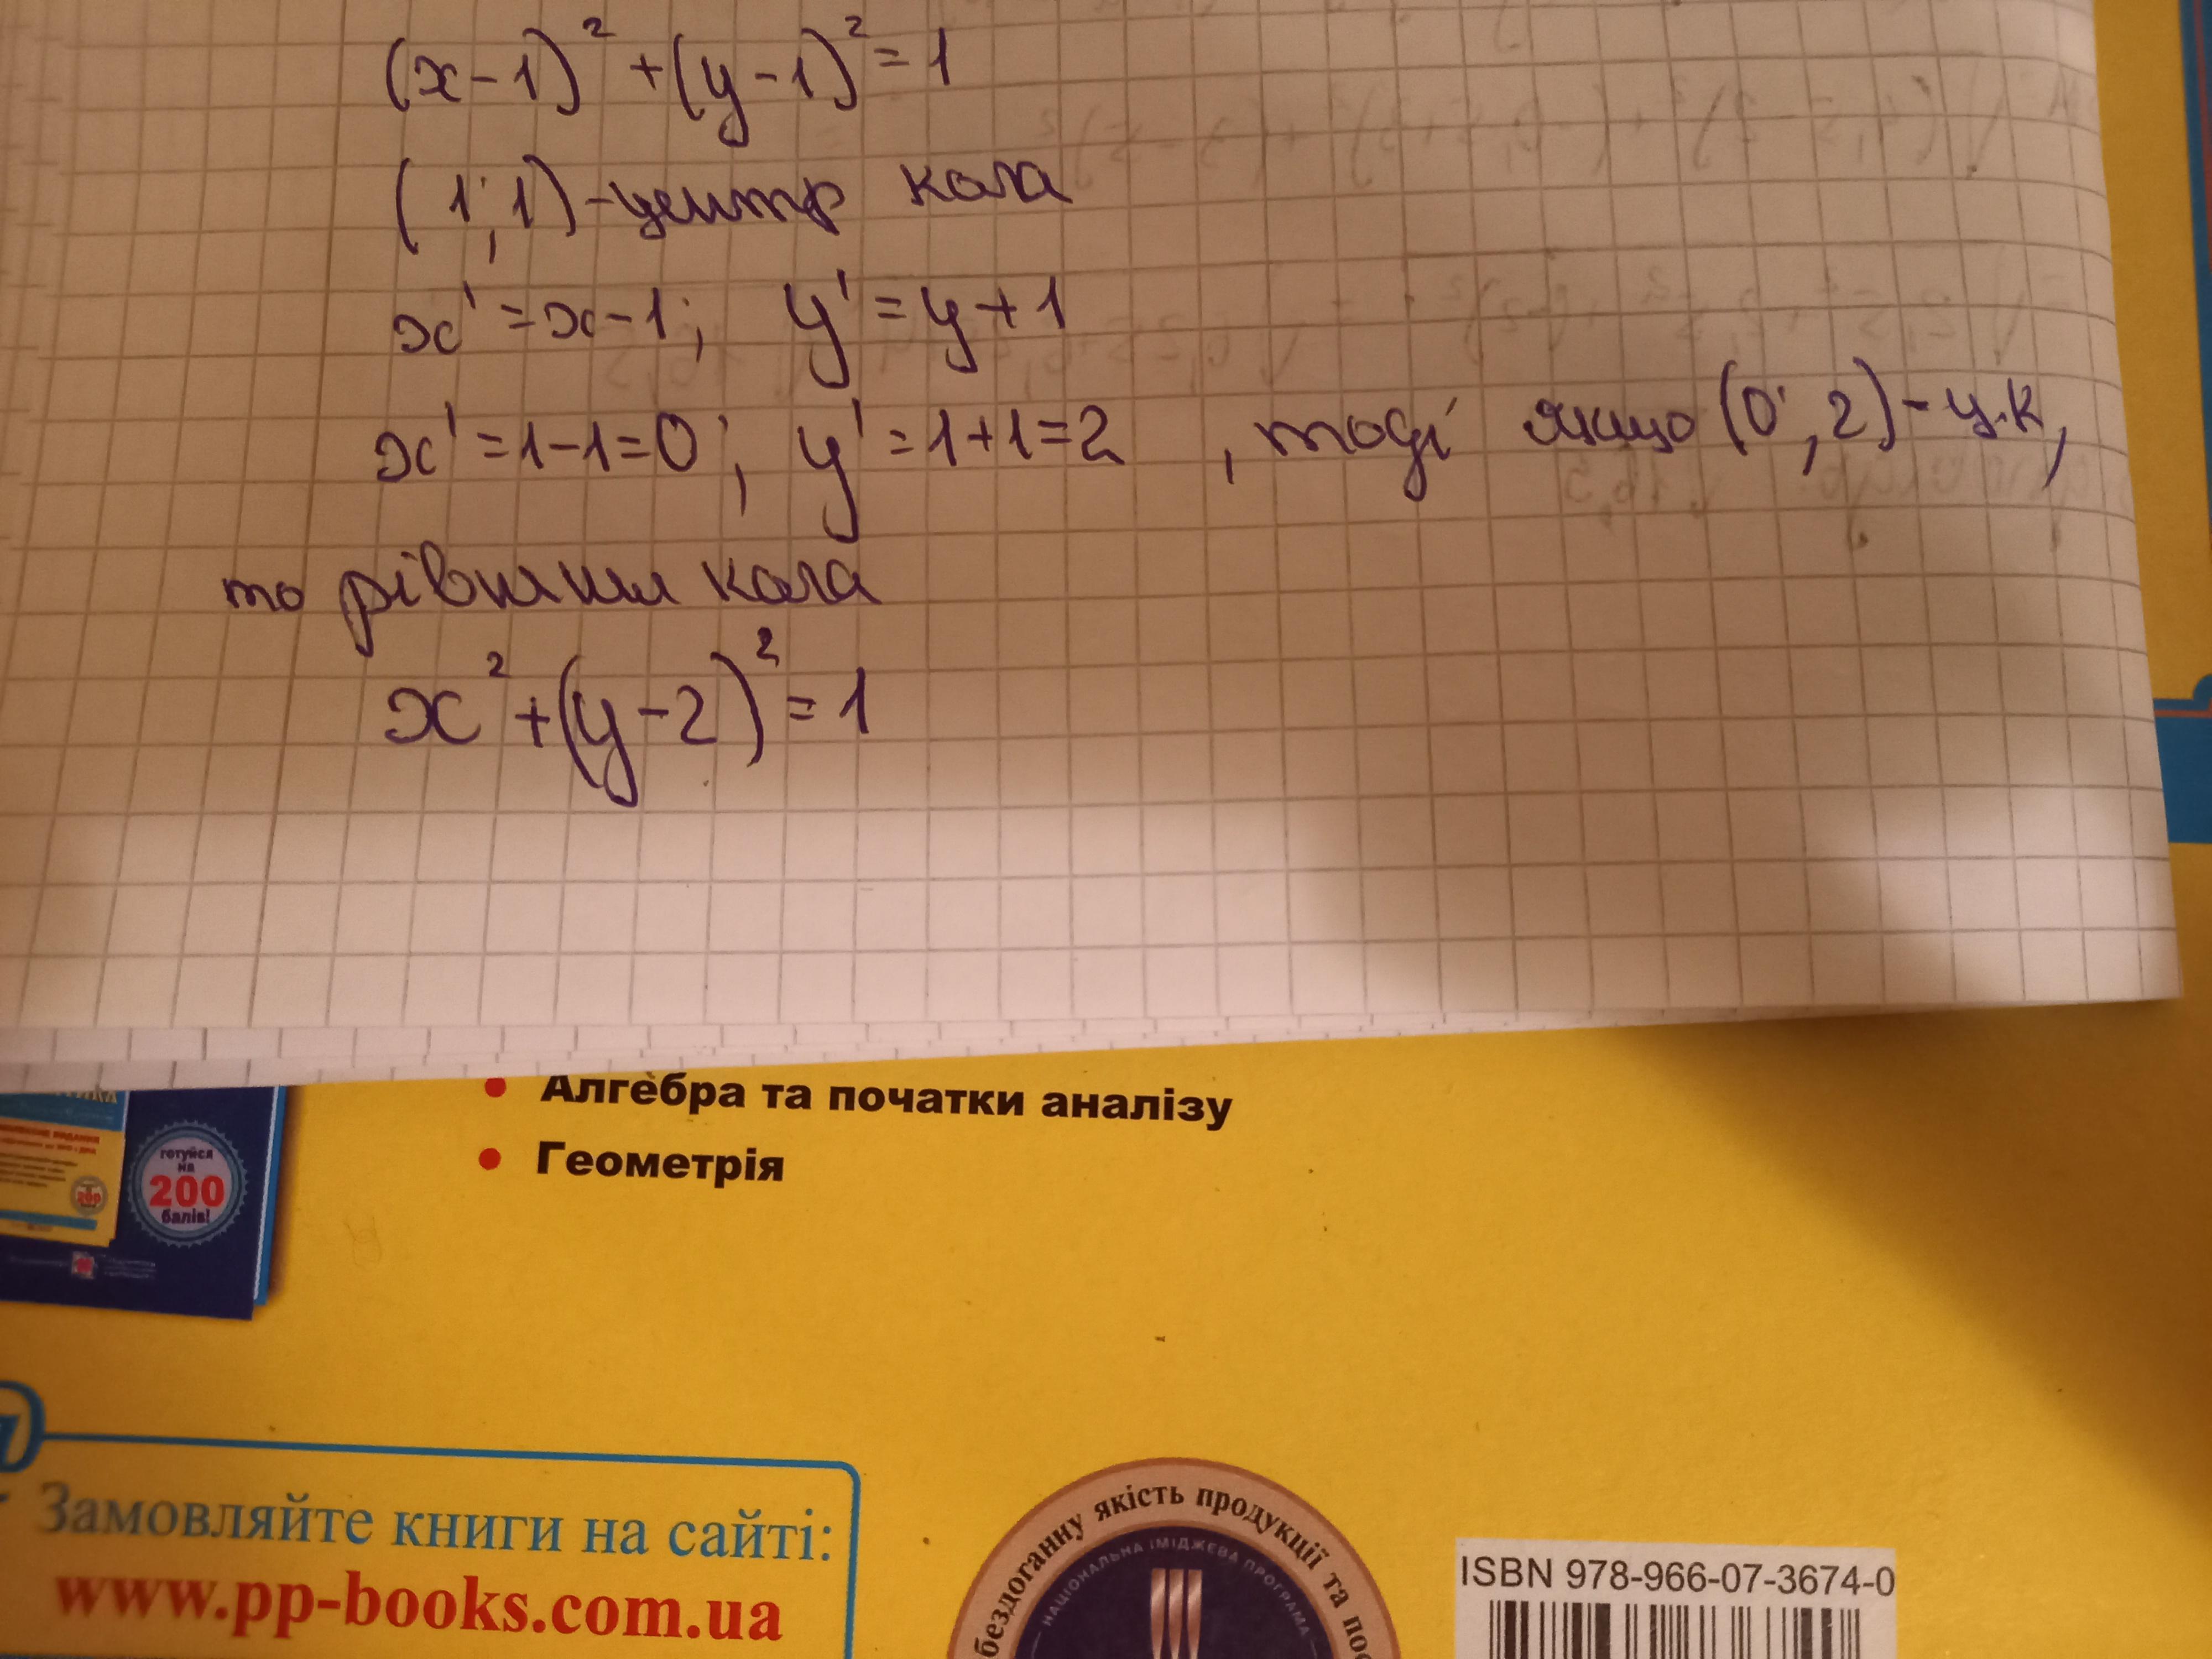 (x-1)² + (y-1)² = 1
(1; 1) - центр кола
x' = x-1; y' = y+1
x' = 1-1=0; y' = 1+1=2 , тоді якщо (0; 2) - ц.к,
то рівняння кола
x² + (y-2)² = 1
• Алгебра та початки аналізу
• Геометрія
готуйся
на
200
балів!
Замовляйте книги на сайті:
www.pp-books.com.ua
бездоганну якість продукції та
НАЦІОНАЛЬНА ІМІДЖЕВА ПРОГРАМА
ISBN 978-966-07-3674-0